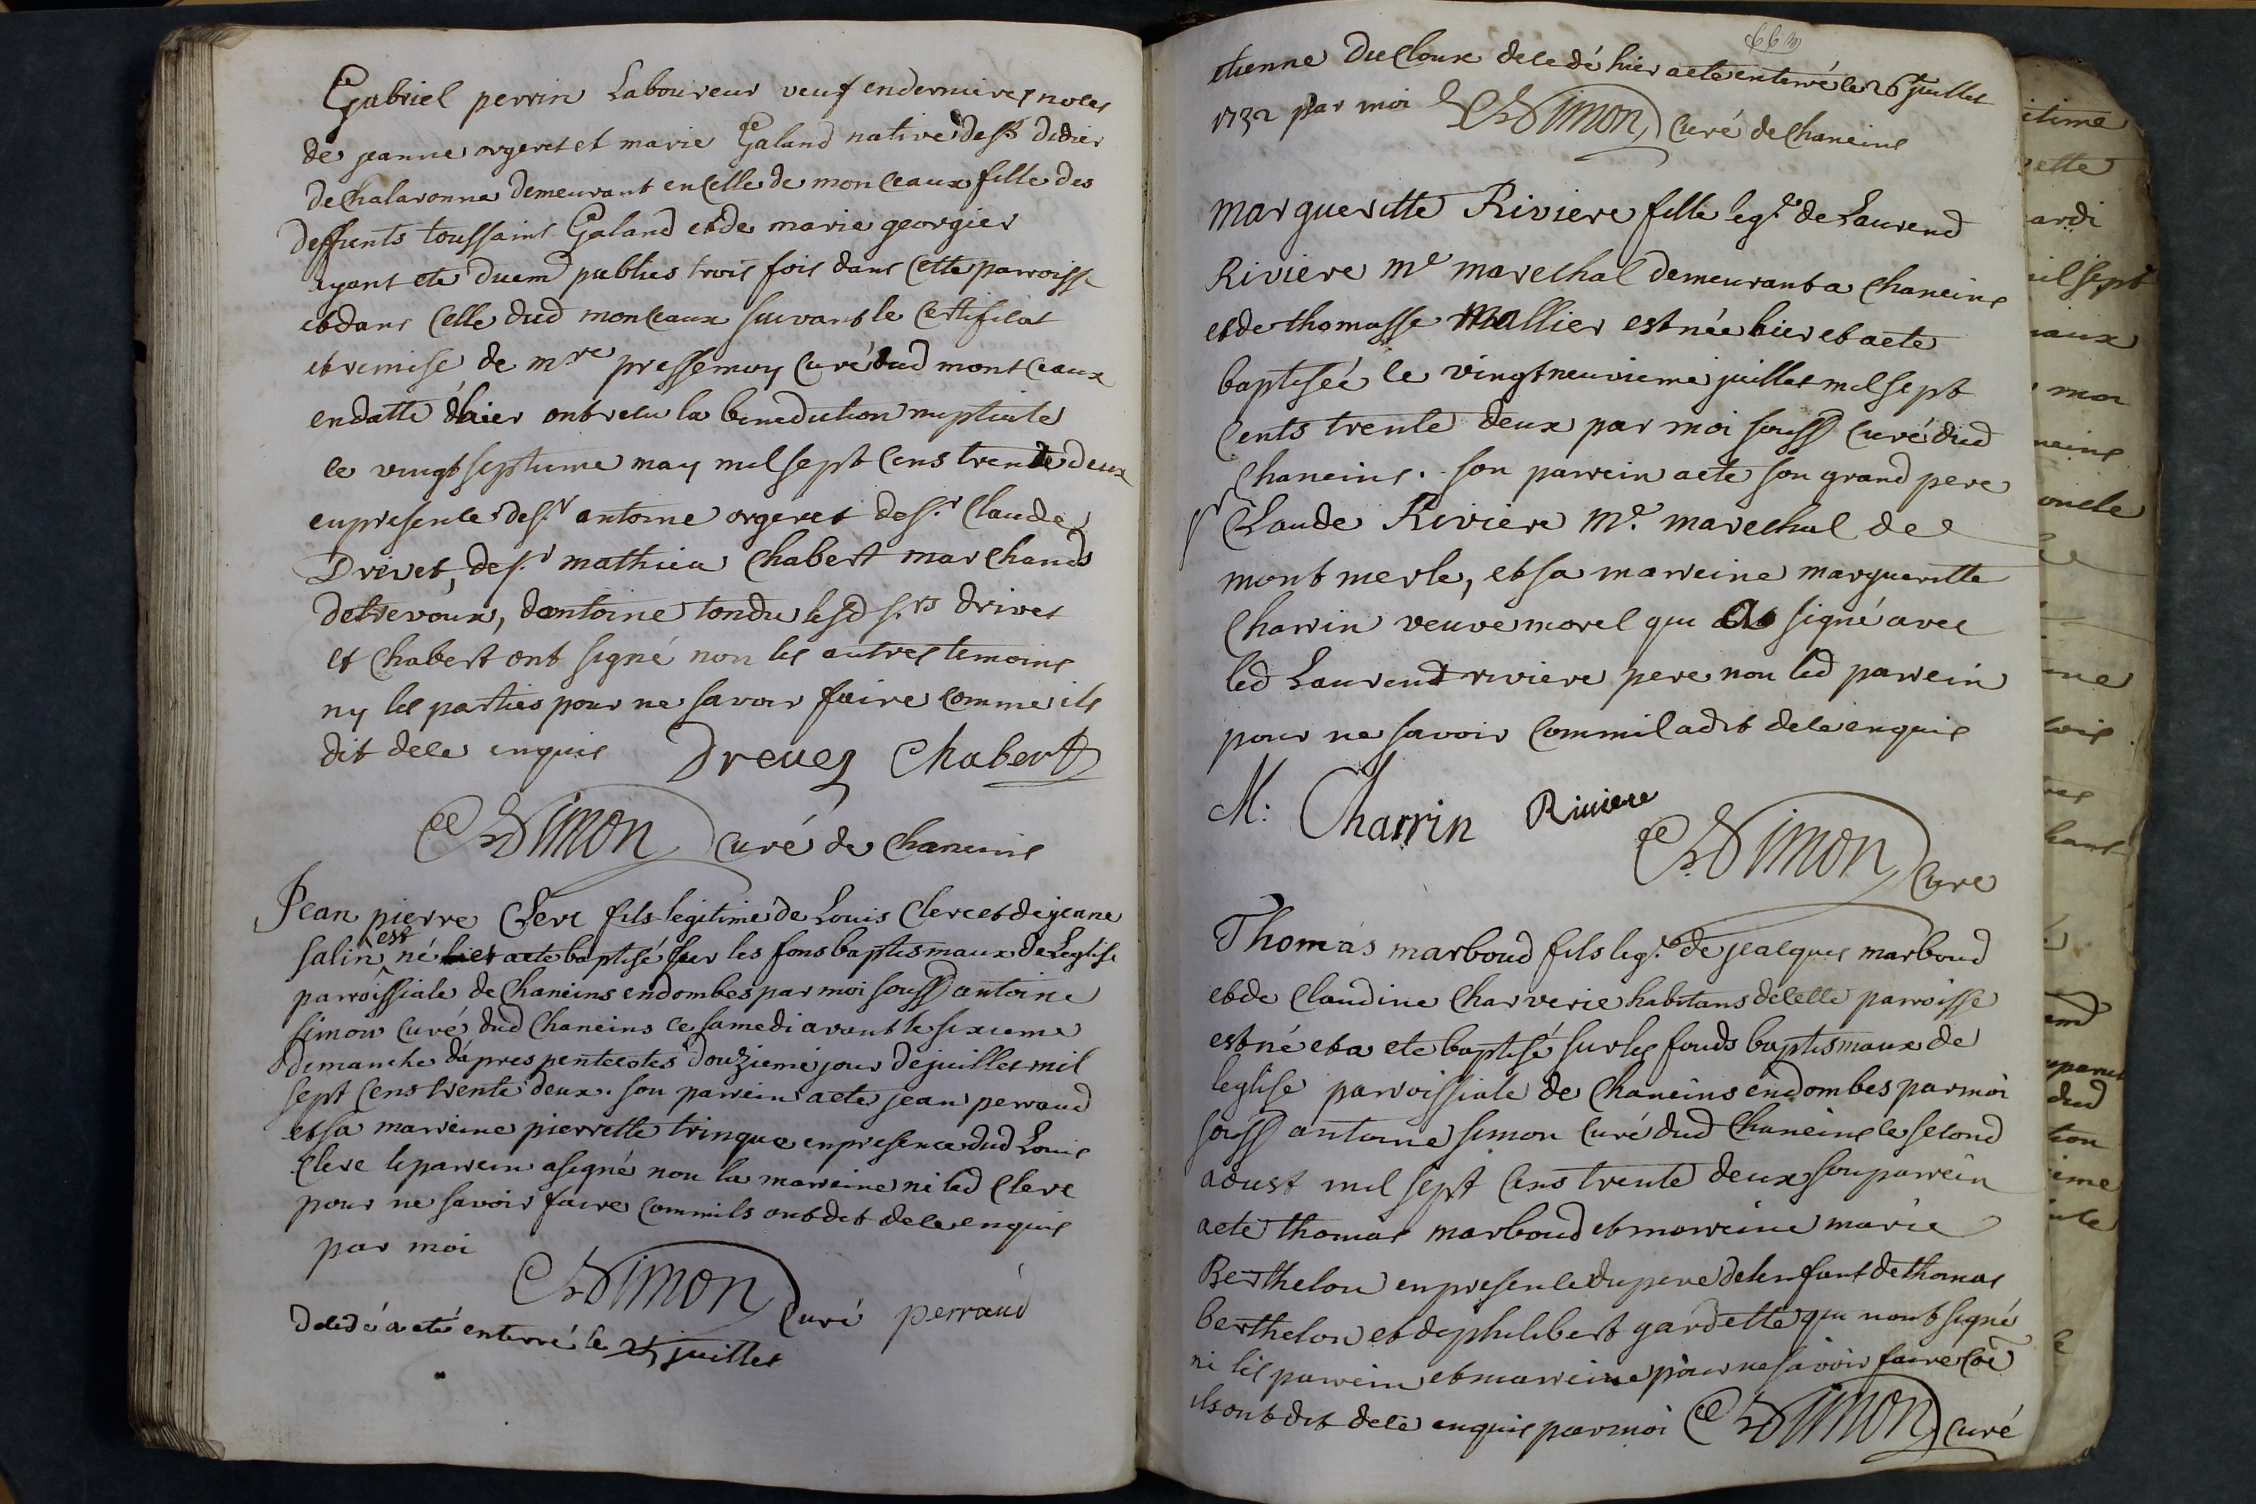 Gabriel perrin Laboureur veuf en dernieres noces
de jeanne orgeret et marie Galand native de st didier
de Chalaronne demeurant en Celle de monceaux fille des
deffunts toussaint Galand et de marie georgier
ayant ete duem publies trois fois dans Cette parroisse
et dans Celle dud monceaux suivant le Certificat
et remise de mre pressemoy Curé dud montceaux
en datte d'hier ont recu la benediction nuptiale
le vingt septieme may mil sept Cens trente deux
en presence de sr antoine orgeret de sr Claude
Drivet, de sr mathieu Chabert marchands
de trevoux, d'antoine tondu lesd srs drivet
et Chabert ont signé non les autres temoins
ny les parties pour ne savoir faire comme ils
dit de ce enquis Drevez Chabert
Simon Curé de Chaneins
Jean pierre Clerc fils legitime de Louis Clerc et de jeane
salin est né hier a ete baptisé sur les fons baptismaux de Leglise
parroissiale de Chaneins en dombes par moi souss antoine
simon Curé dud Chaneins ce samedi avant le sixieme
dimanche d'apres pentecotes douzieme jour de juillet mil
sept Cens trente deux. son parrein a ete jean perraud
et sa marreine pierrette trinque en presence dud Louis
Clerc le parrein a signé non la marreine ni led Clerc
pour ne savoir faire Commils ont dit de ce enquis
par moi
Simon Curé perraud
decedé a eté enterré le 25 juillet
663
etienne Ducloux decedé hier a ete enterré le 26 juillet
1732 par moi Simon Curé de Chaneins
margueritte Riviere fille leg.e de Laurend
Riviere me marechal demeurant a Chaneins
et de thomasse Mallier est née hier et a ete
baptisée le vingt neuvieme juillet mil sept
Cents trente deux par moi souss Curé dud
Chaneins. son parrein a ete son grand pere
sr Claude Riviere Me. marechal de
mont merle, et sa marreine margueritte
Charrin veuve morel qui a signé avec
led Laurend riviere pere non led parrein
pour ne savoir Commil a dit de ce enquis
M: Charrin Riviere
Simon Curé
Thomas marboud fils leg.e de jeacques marboud
et de Claudine Charverie habitans de Cette parroisse
est né et a ete baptisé sur les fonds baptismaux de
leglise parroissiale de Chaneins en dombes par moi
souss antoine simon Curé dud Chaneins le second
aoust mil sept Cens trente deux son parrein
a ete thomas marboud et marreine marie
Berthelon en presence du pere de lenfant de thomas
berthelon et de philibert gardette qui nont signé
ni les parrein et marreine pour ne savoir faire coe
ils ont dit de ce enquis par moi Simon Curé